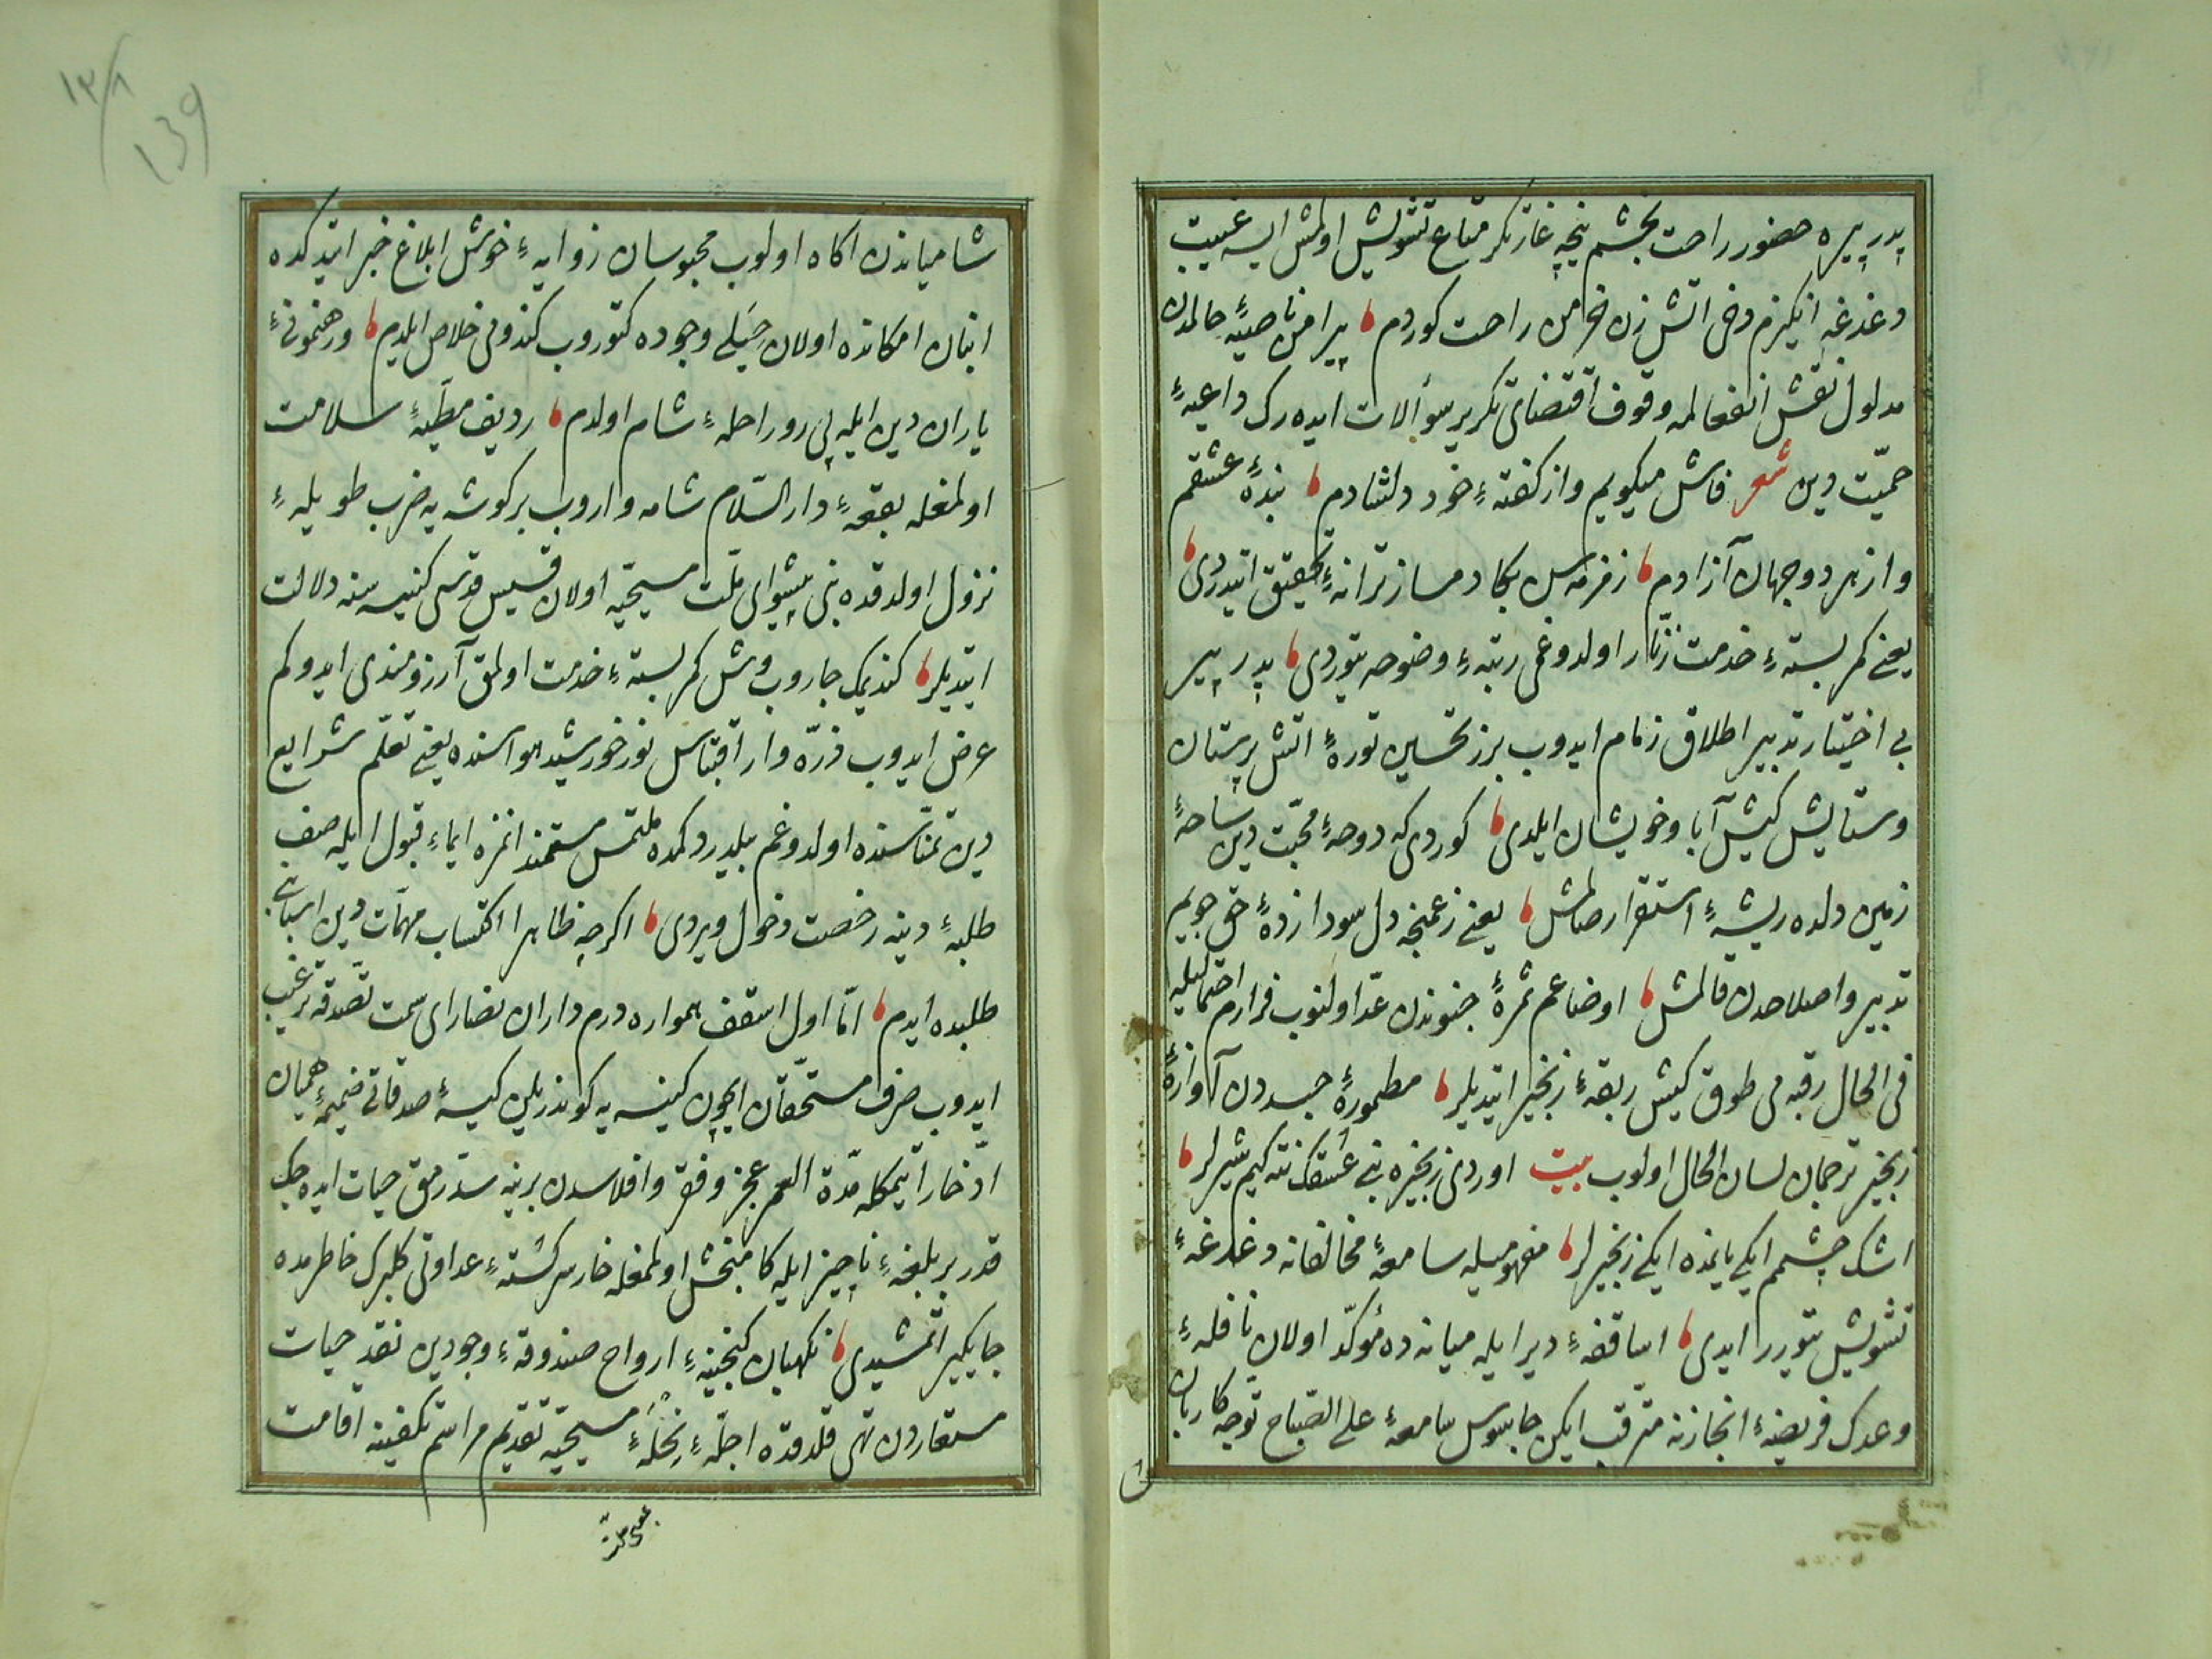 پدر پیره حضور راحت بخشم نیجه غارتکر متاع تشویش اولمش ایسه غیبت
دغدغه انکیزم دخی اتش زن خرمن راحت کوردم پیرامن ناصیهٔ حالمدن
مدلول نقش انفعالمه وقوف اقتضای تکریر سؤالات ایده رک داعیهٔ
حمیّت دین شعر فاش میکویم واز کفتهٔ خود دلشادم بندهٔ عشقم
واز هر دو جهان آزادم زمزمه سن بکا دمساز ترانهٔ تحقیق ایتدردی
یعنی کمر بستهٔ خدمت زنّار اولدوغمی رتبهٔ وضوحه یتوردی پدر پیر
بی اختیار تدبیر اطلاق زمام ایدوب برز تحسین تورهٔ اتش پرستان
وستایش کیش آبا وخویشان ایلدی کوردی که دوحهٔ محبّت دین ساحهٔ
زمین دلده ریشهٔ استقرار صالمش یعنی زعمنجه دل سودا زدهٔ حق جویم
تدبیر واصلاحدن قالمش اوضاعم ثمرهٔ جنوندن عدّ اولنوب فرارم احتمالیله
فی الحال رقبه می طوق کیش ربقهٔ زنجیر ایتدیلر مطمورهٔ جسددن آوازهٔ
زنجیر ترجمان لسان الحال اولوب بیت اوردی زنجیره بنی عشقک نته کیم شیرلر
اشک چشمم ایکی یانمده ایکی زنجیرلر مفهومیله سامعهٔ مخالفانه دغدغهٔ
تشویش یتورر ایدی اساقفهٔ دیر ایله میانه ده مؤکّد اولان نافلهٔ
وعدک فریضهٔ انجازنه مترقب ایکن جاسوس سامعهٔ علی الصباح توجه کاربان
شامیاندن اکاه اولوب محبوسان زوایهٔ خوش ابلاغ خبر ایتدکده
انبان امکانده اولان حیَلی وجوده کتوروب کندومی خلاص ایلدم ورهنمونیٔ
یاران دین ایله پی رو راحلهٔ شام اولدم ردیف مطیّهٔ سلامت
اولمغله بقعهٔ دار السّلام شامه واروب بر کوشه یه ضرب طویلهٔ
نزول اولدقده بنی پیشوای ملّت مسیحیّه اولان قسیس قدسی کنیسه سنه دلالت
ایتدیلر کندیمک جاروب وش کمر بستهٔ خدمت اولمق آرزومندی ایدوکم
عرض ایدوب ذرّه وار اقتباس نور خورشید هواسنده یعنی تعلّم شرایع
دین تمنّاسنده اولدوغم بلدردکمده ملتمس مستمندانمزه ایماء قبول ایله صف
طلبهٔ دینه رخصت دخول ویردی اکرچه ظاهرا اکتساب مهمّات دین اسبابنی
طلبده ایدم امّا اول اسقف همواره درم داران نصارای سمت تصدّقه ترغیب
ایدوب صرف مستحقّان ایچون کنیسه یه کوندریلن کیسهٔ صدقاتی ضمیمهٔ همیان
ادّخار ایتمکله مدّة العمر عجز وفقر وافلاسدن برینه سدّ رمق حیات ایده جک
قدر بر بلغهٔ ناچیز ایله کامبخش اولمغله خار سر کشتهٔ عداوتی کلبرک خاطرمده
جایکیر اتمشیدی نکهبان کنجینهٔ ارواح صندوقهٔ وجودین نقد حیات
مستعاردن تهی قلدقده اجلّهٔ نِحلَهٔ مسیحیّه تقدیم مراسم تکفینه اقامت
۱۳۸
139